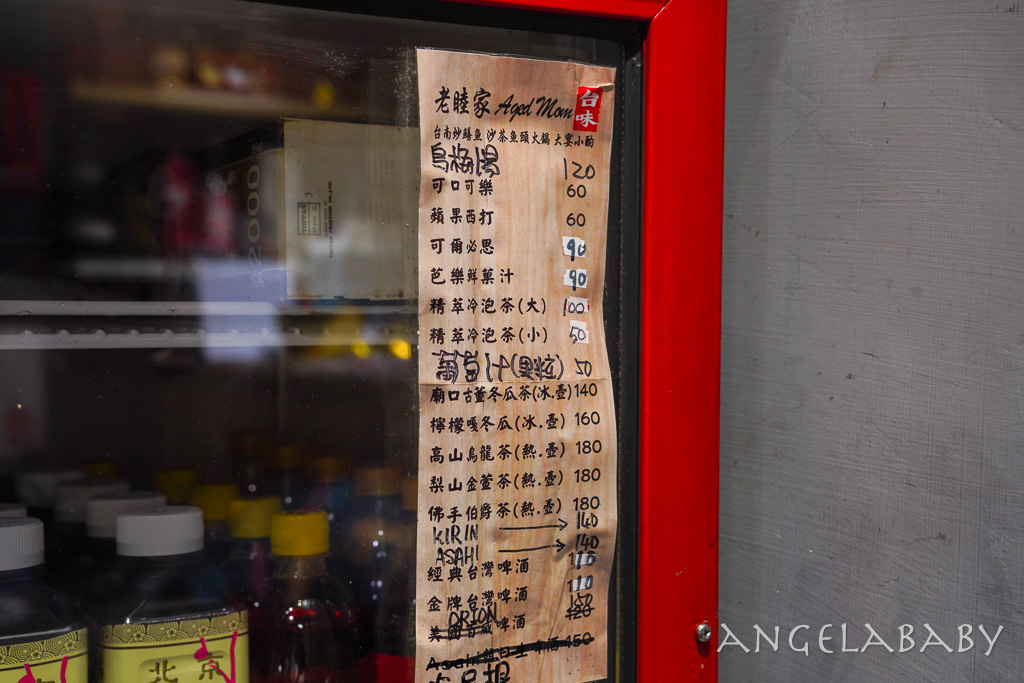 老睦家 Aged Mom 台味
台南炒鱔魚 沙茶魚頭火鍋 大宴小酌
烏梅湯 120
可口可樂 60
蘋果西打 60
可爾必思 90
芭樂鮮菓汁 90
精萃冷泡茶(大) 100
精萃冷泡茶(小) 50
葡萄汁(果粒) 50
廟口古董冬瓜茶(冰.壺) 140
檸檬嘎冬瓜(冰.壺) 160
高山烏龍茶(熱.壺) 180
梨山金萱茶(熱.壺) 180
佛手伯爵茶(熱.壺) 180
KIRIN → 140
ASAHI → 140
經典台灣啤酒 110
金牌台灣啤酒 110
ORION 150
啤酒 120
Asahi 啤酒 150
2000
北京
ANGELABABY